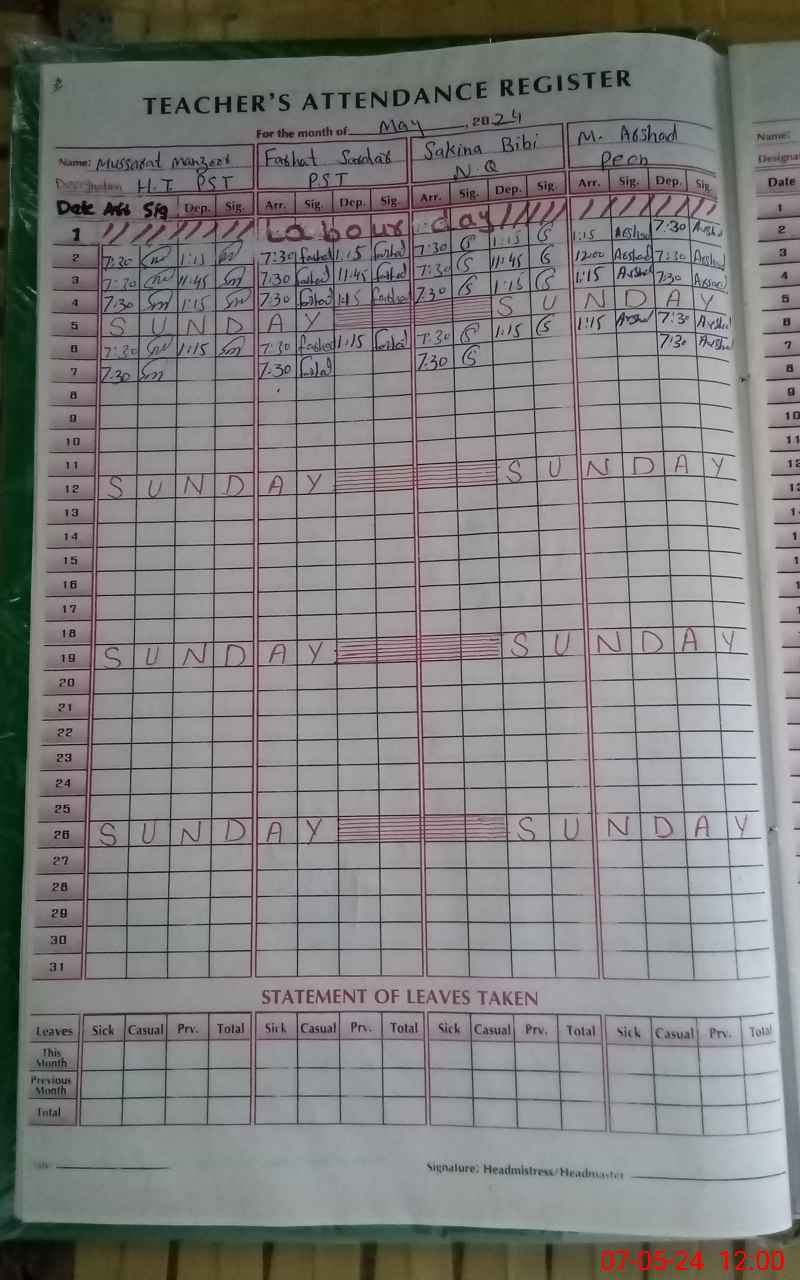 TEACHER'S ATTENDANCE REGISTER
For the month of May, 2024
Name: Mussarat Manzoor Farhat Sardar Sakina Bibi M. Arshad Name:
Designation H.T PST P.S.T N.Q Peon Designat
Date Arr Sig Dep. Sig. Arr. Sig. Dep. Sig. Arr. Sig. Dep. Sig. Arr. Sig. Dep. Sig. Date
1 Labour day 1
2 7:30 1:15 7:30 farhad 1:15 farhad 7:30 S 1:15 S 1:15 Arshad 7:30 Arshad 2
3 7:30 11:45 7:30 farhad 11:45 farhad 7:30 S 11:45 S 12:00 Arshad 7:30 Arshad 3
4 7:30 Sm 1:15 Sm 7:30 farhad 1:15 farhad 7:30 S 1:15 S 1:15 Arshad 7:30 Arshad 4
5 S U N D A Y S U N D A Y 5
6 7:30 1:15 Sm 7:30 farhad 1:15 farhad 7:30 S 1:15 S 1:15 Arshad 7:30 Arshad 6
7 7:30 Sm 7:30 farhad 7:30 S 7:30 Arshad 7
8 8
9 9
10 10
11 11
12 S U N D A Y S U N D A Y 12
13
14
15
16
17
18
19 S U N D A Y S U N D A Y
20
21
22
23
24
25
26 S U N D A Y S U N D A Y
27
28
29
30
31
STATEMENT OF LEAVES TAKEN
Leaves Sick Casual Prv. Total Sick Casual Prv. Total Sick Casual Prv. Total Sick Casual Prv. Total
This Month
Previous Month
Total
Signature: Headmistress/Headmaster
07-05-24 12:00